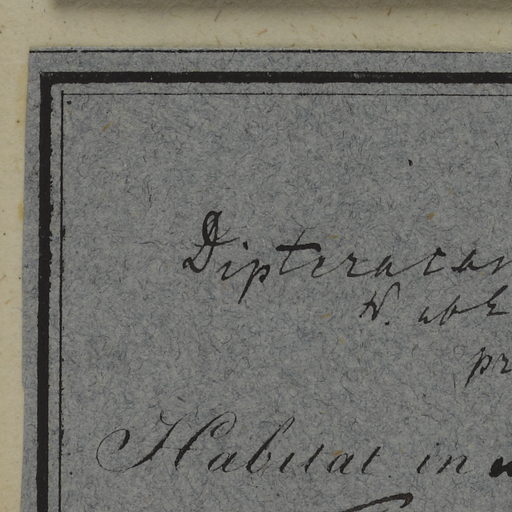 Dipteracan
N. ab E
pr
Habitat in